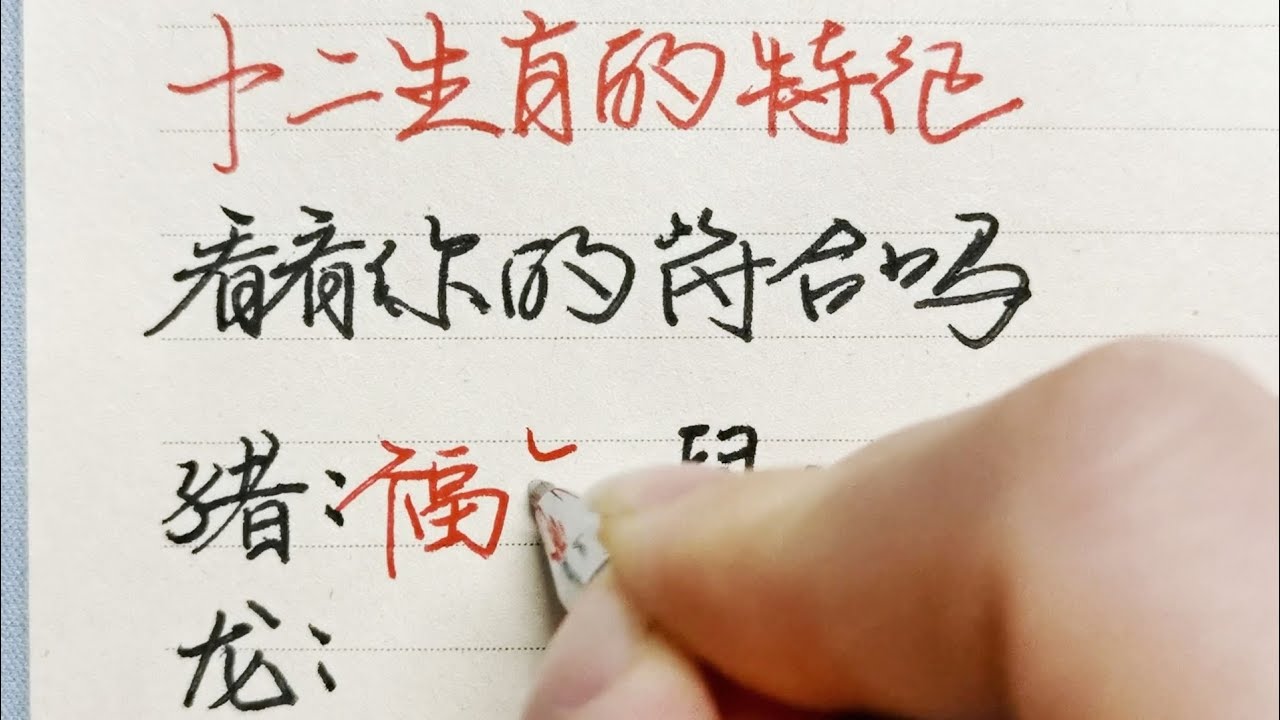 十二生肖的特征
看看你的符合吗
猪:福
龙: